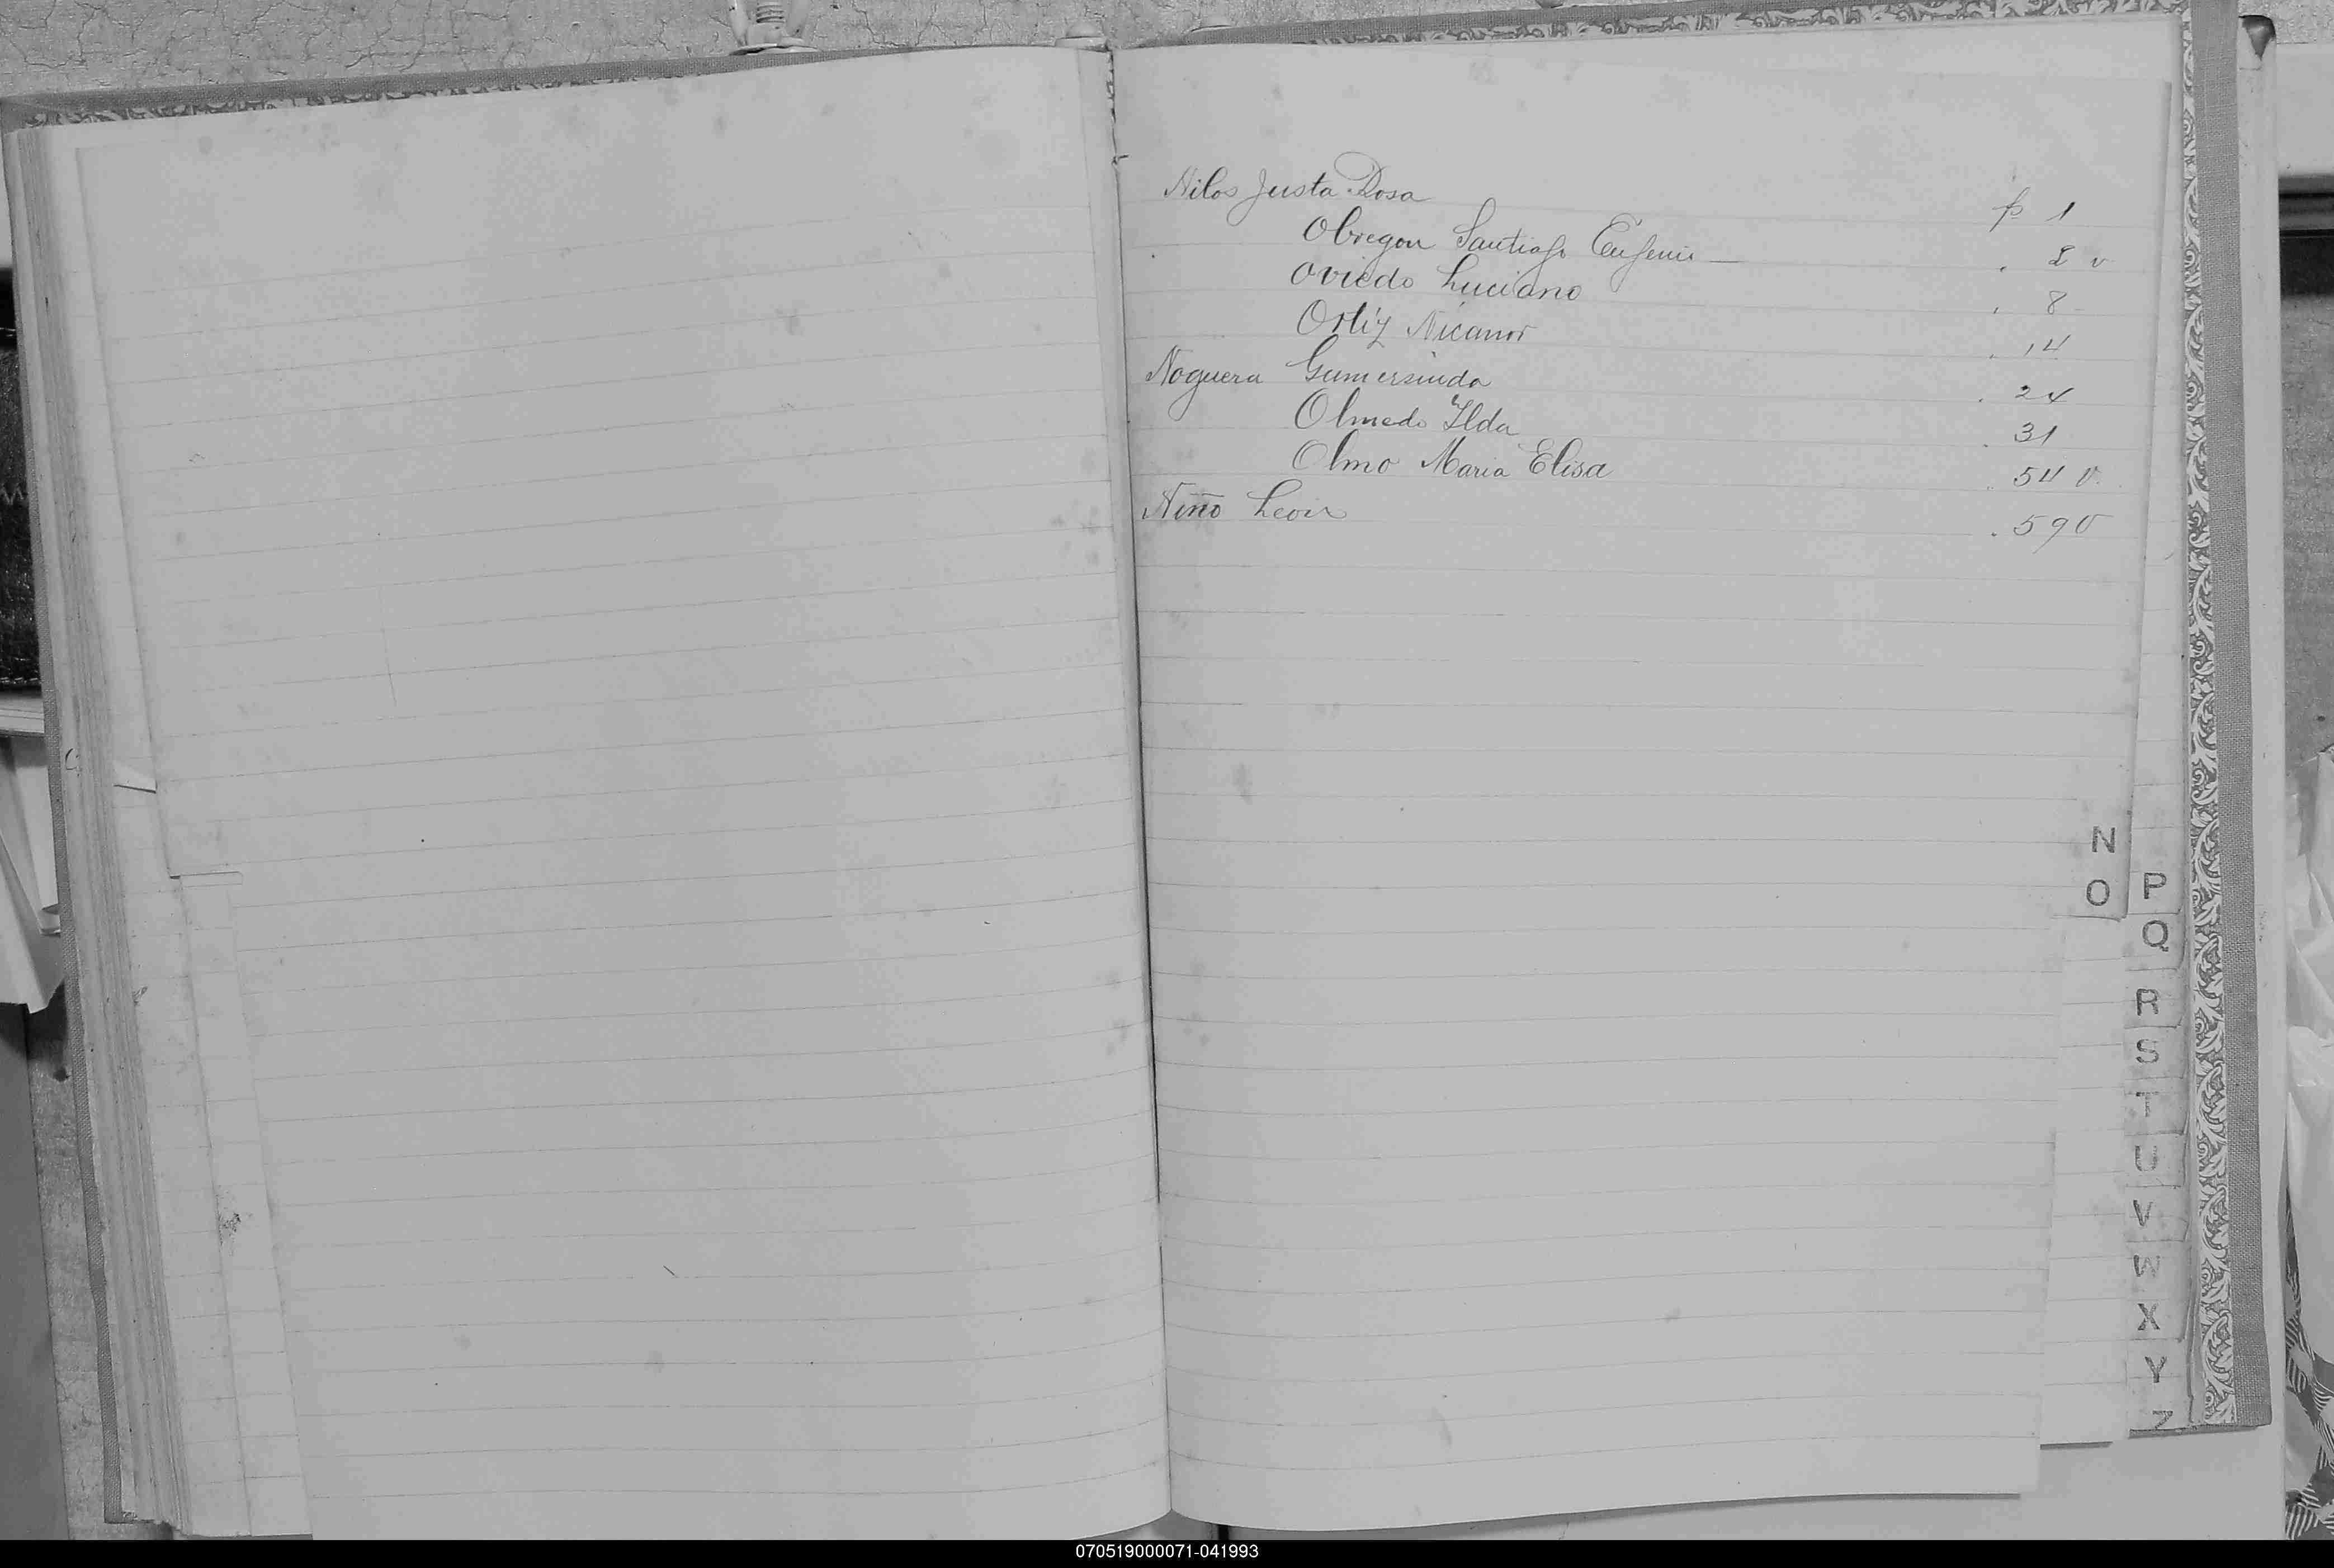 Nilos Justa Rosa p 1
Obregon Santiago Eugenio 2 v
Oviedo Luciano 8
Ortiz Nicanor 14
Noguera Gumersinda 24
Olmedo Ilda 31
Olmo Maria Elisa 54 v.
Niño León 59 v
N
O
P
Q
R
S
T
U
V
W
X
Y
Z
070519000071-041993